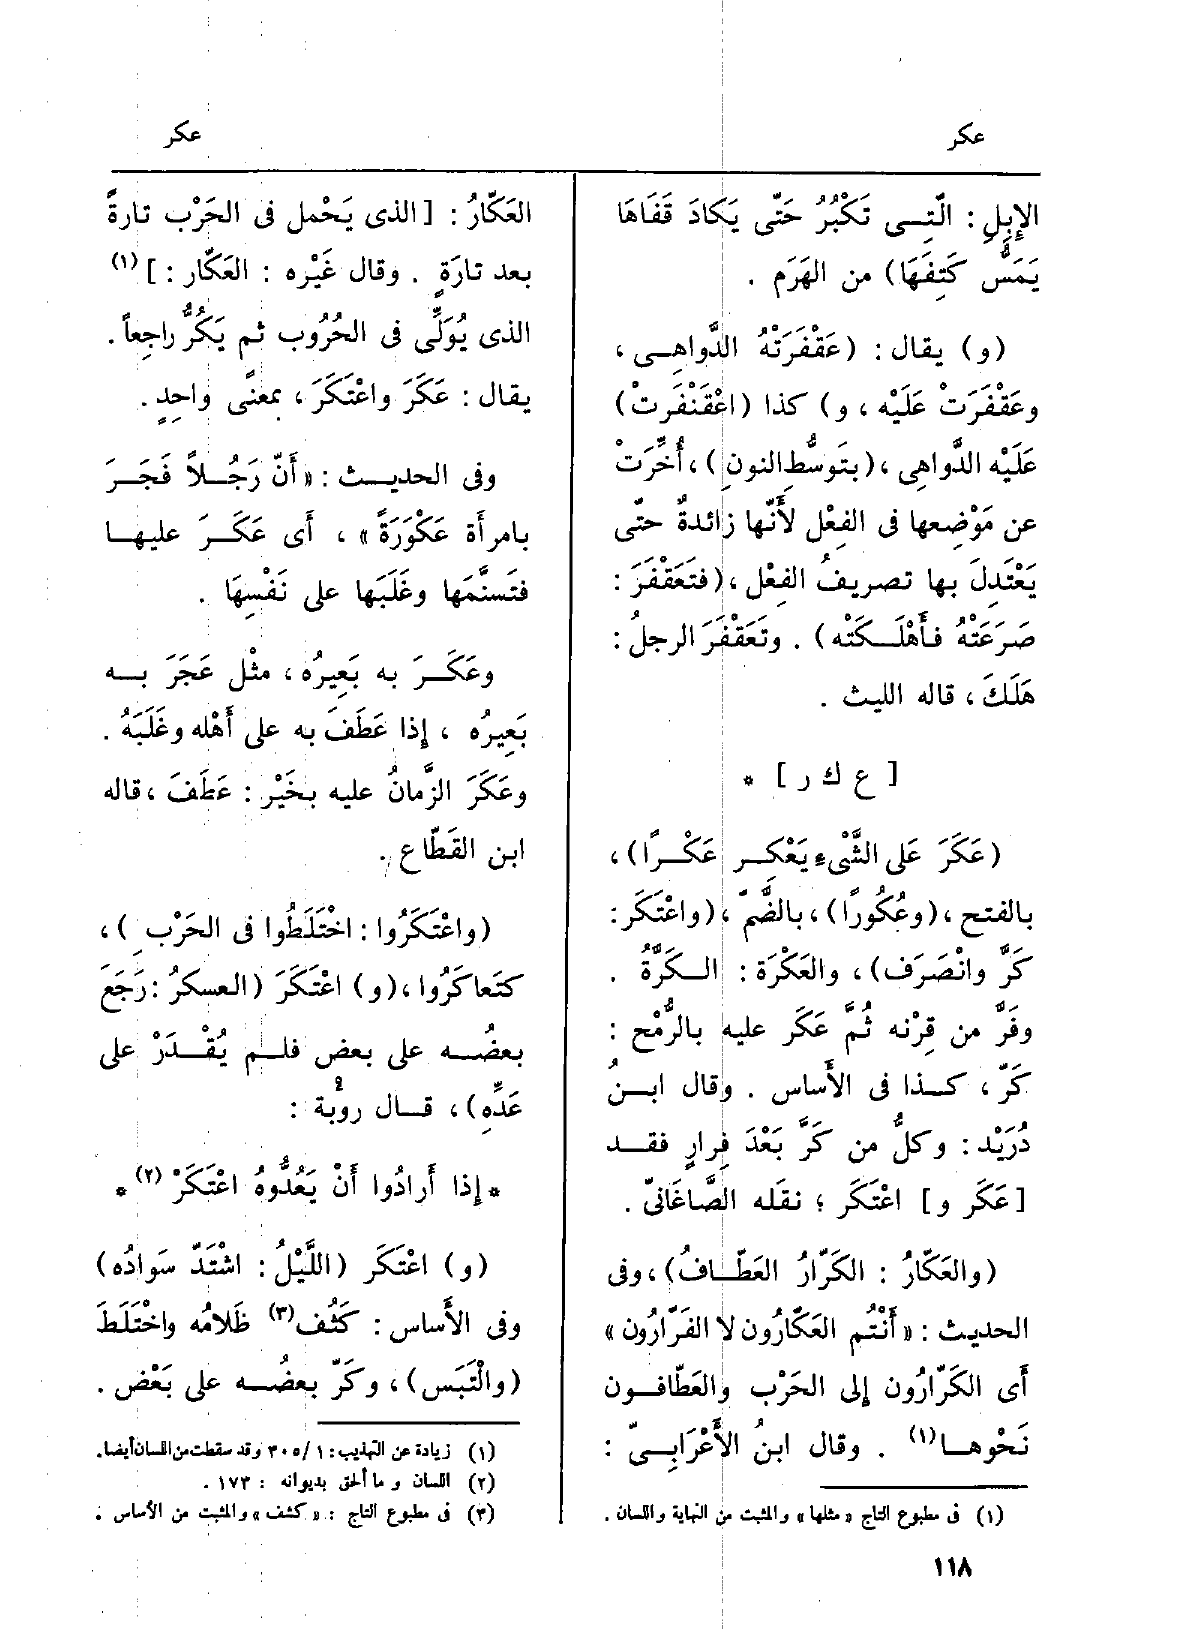 عكر
عكر
الإِبِلِ : الَّتِـــى تَكْبُرُ حَتَّى يَكادَ قَفَاهَا
يَمَسُّ كَتِفَهَا) من الهَرَم .
(و) يقال : (عَقْفَرَتْهُ الدَّواهِــى ،
وعَقْفَرَتْ عَلَيْه ، و) كذا (اعْقَنْفَرتْ)
عَلَيْه الدَّواهى ، (بتَوسُّطِ النونِ) ، أُخِّرَتْ
عن مَوْضعها فى الفِعْل لأَنَّها زائدةٌ حتّى
يَعْتَدِلَ بها تصريفُ الفِعْل ، (فتَعَقْفَرَ :
صَرَعَتْهُ فأَهْلَــكَتْه) . وتَعَقْفَرَ الرجلُ :
هَلَكَ ، قاله الليث .
[ ع ك ر ] *
(عَكَرَ عَلى الشَّىْءِ يَعْكِــر عَكْــرًا) ،
بالفتح ، (وعُكُورًا) ، بالضَّمّ ، (واعْتَكَر :
كَرَّ وانْصَرَف) ، والعَكْرَة : الــكَرَّةُ .
وفَرَّ من قِرْنه ثُمَّ عَكَر عليه بالرُّمْحِ :
كَرّ ، كــذا فى الأَساس . وقال ابــنُ
دُرَيْد : وكلُّ من كَرَّ بَعْدَ فِرارٍ فقــد
[عَكَر و] اعْتَكَر ؛ نقلَه الصّاغَانىّ .
(والعَكّارُ : الكَرّارُ العَطّــافُ) ، وفى
الحديث : « أَنْتُم العَكّارُون لا الفَرّارُون »
أَى الكَرّارُون إلى الحَرْب والعَطّافــون
نَحْوهــا(١) . وقال ابنُ الأَعْرَابــىّ :
(١) فى مطبوع التاج « مثلها » والمثبت من النهاية واللسان .
١١٨
العَكّارُ : [ الذى يَحْمل فى الحَرْب تارةً
بعد تارَةٍ . وقال غَيْره : العَكّار : ] (١)
الذى يُوَلِّى فى الحُرُوب ثم يَكُرُّ راجِعاً .
يقال : عَكَرَ واعْتَكَرَ ، بمعنًى واحِدٍ .
وفى الحديــث : « أَنّ رَجُــلاً فَجَــرَ
بامرأة عَكْوَرَةً » ، أَى عَكَــرَ عليهــا
فتَسنَّمَها وغَلَبَها على نَفْسِهَا .
وعَكَــرَ به بَعِيرُه ، مثْل عَجَرَ بــه
بَعِيرُه ، إِذا عَطَفَ به على أَهْله وغَلَبَهُ .
وعَكَرَ الزَّمانُ عليه بخَيْر : عَطَفَ ، قاله
ابن القَطّاع .
(واعْتَكَرُوا : اخْتَلَطُوا فى الحَرْبِ ) ،
كتَعاكَرُوا ، (و) اعْتَكَرَ (العسكرُ : رَجَعَ
بعضُــه على بعض فلــم يُقْــدَرْ على
عَدِّه) ، قــال رؤبة :
* إِذا أَرادُوا أَنْ يَعُدُّوهُ اعْتَكَرْ (٢) *
(و) اعْتَكَر (اللَّيْلُ : اشْتَدّ سَوادُه)
وفى الأَساس : كَثُف(٣) ظَلامُه واخْتَلَطَ
(والْتَبَس) ، وكَرّ بعضُــه على بَعْض .
(١) زيادة عن التهذيب : ١ / ٣٠٥ وقد سقطت من اللسان أيضا .
(٢) اللسان و ما ألحق بديوانه : ١٧٣ .
(٣) فى مطبوع التاج : « كشف » والمثبت من الأساس .